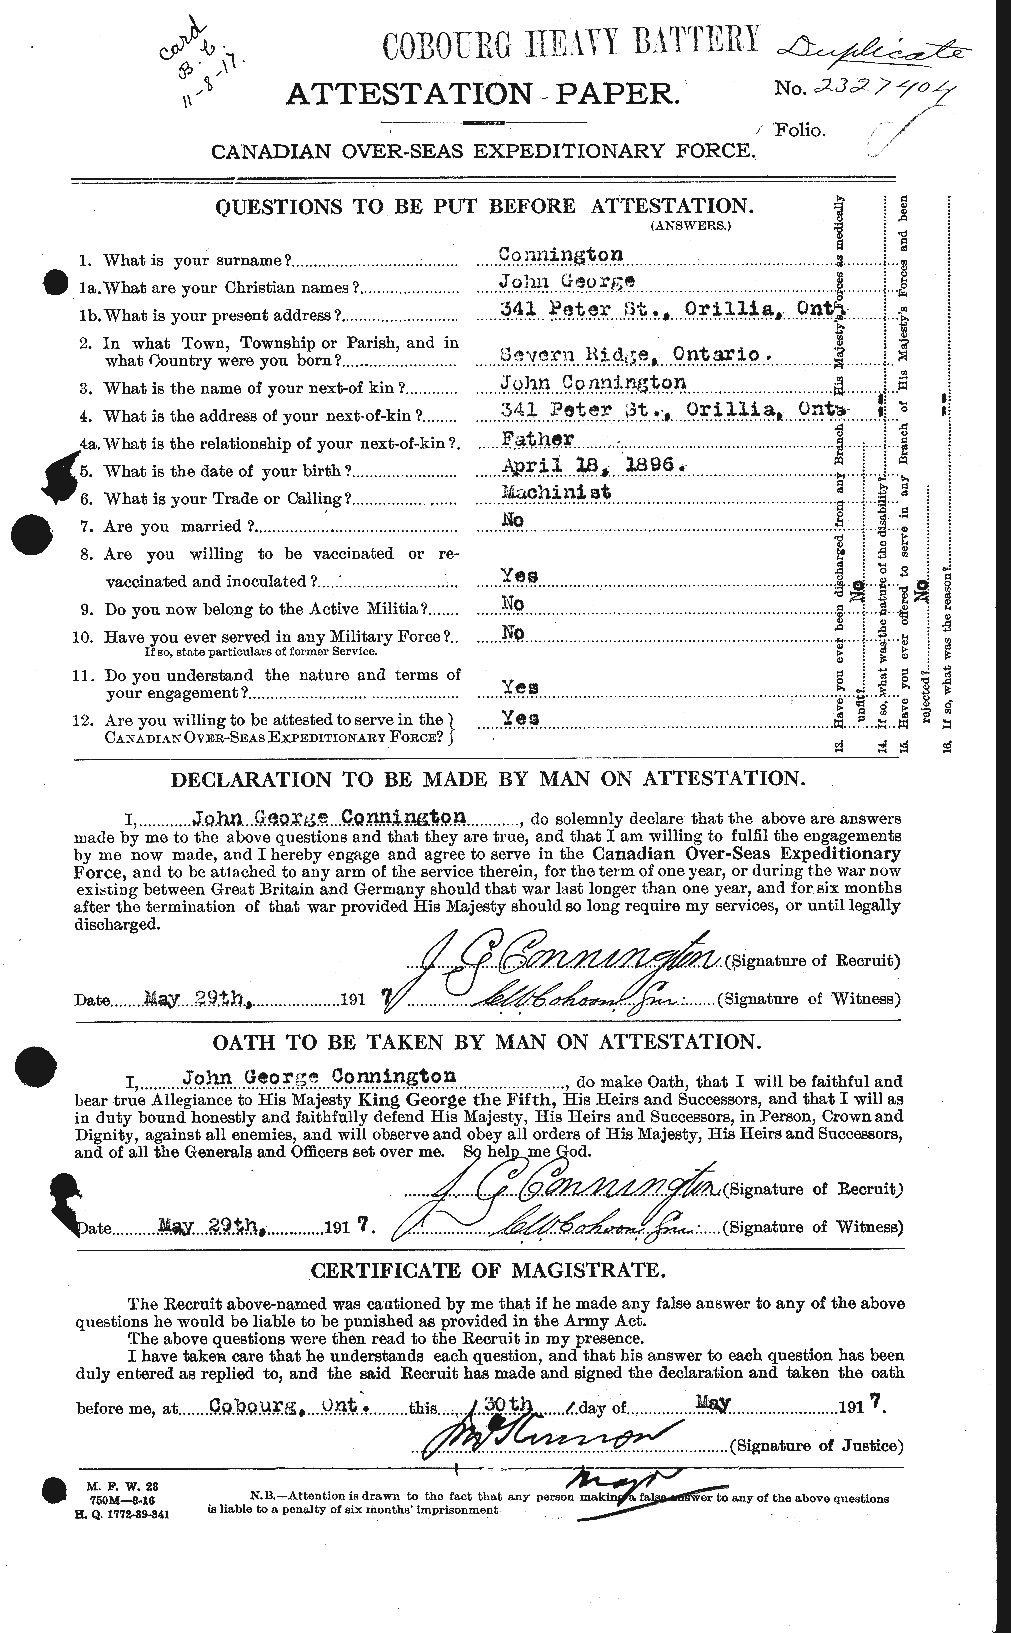 card
B.C.
11-8-17.
COBOURG HEAVY BATTERY
Duplicate
ATTESTATION PAPER.
No. 2327404
Folio.
CANADIAN OVER-SEAS EXPEDITIONARY FORCE.
QUESTIONS TO BE PUT BEFORE ATTESTATION.
(ANSWERS.)
1. What is your surname?.......... Connington
1a. What are your Christian names?.......... John George
1b. What is your present address?.......... 341 Peter St., Orillia, Ont.
2. In what Town, Township or Parish, and in
what Country were you born?.......... Severn Ridge, Ontario.
3. What is the name of your next-of kin?.......... John Connington
4. What is the address of your next-of-kin?.......... 341 Peter St., Orillia, Ont.
4a. What is the relationship of your next-of-kin?. Father
5. What is the date of your birth?.......... April 18, 1896.
6. What is your Trade or Calling?.......... Machinist
7. Are you married?.......... No
8. Are you willing to be vaccinated or re-
vaccinated and inoculated?.......... Yes
9. Do you now belong to the Active Militia?....... No
10. Have you ever served in any Military Force?.. No
If so, state particulars of former Service.
11. Do you understand the nature and terms of
your engagement?.......... Yes
12. Are you willing to be attested to serve in the
CANADIAN OVER-SEAS EXPEDITIONARY FORCE? Yes
13. Have you ever been discharged from any Branch of His Majesty's Forces as medically
unfit?.......... No
14. If so, what was the nature of the disability?..........
15. Have you ever offered to serve in any Branch of His Majesty's Forces and been
rejected?.......... No
16. If so, what was the reason?..........
DECLARATION TO BE MADE BY MAN ON ATTESTATION.
I, John George Connington, do solemnly declare that the above are answers
made by me to the above questions and that they are true, and that I am willing to fulfil the engagements
by me now made, and I hereby engage and agree to serve in the Canadian Over-Seas Expeditionary
Force, and to be attached to any arm of the service therein, for the term of one year, or during the war now
existing between Great Britain and Germany should that war last longer than one year, and for six months
after the termination of that war provided His Majesty should so long require my services, or until legally
discharged.
J G Connington (Signature of Recruit)
Date May 29th, 1917 C W Cohoon Gnr. (Signature of Witness)
OATH TO BE TAKEN BY MAN ON ATTESTATION.
I, John George Connington, do make Oath, that I will be faithful and
bear true Allegiance to His Majesty King George the Fifth, His Heirs and Successors, and that I will as
in duty bound honestly and faithfully defend His Majesty, His Heirs and Successors, in Person, Crown and
Dignity, against all enemies, and will observe and obey all orders of His Majesty, His Heirs and Successors,
and of all the Generals and Officers set over me. So help me God.
J G Connington (Signature of Recruit)
Date May 29th, 1917. C W Cohoon Gnr. (Signature of Witness)
CERTIFICATE OF MAGISTRATE.
The Recruit above-named was cautioned by me that if he made any false answer to any of the above
questions he would be liable to be punished as provided in the Army Act.
The above questions were then read to the Recruit in my presence.
I have taken care that he understands each question, and that his answer to each question has been
duly entered as replied to, and the said Recruit has made and signed the declaration and taken the oath
before me, at Cobourg, Ont. this 30th day of May 1917.
(Signature of Justice)
Major
M. F. W. 23
750M—8-16
H. Q. 1772-39-841
N.B.—Attention is drawn to the fact that any person making a false answer to any of the above questions
is liable to a penalty of six months' imprisonment